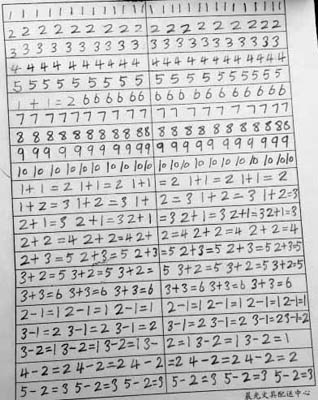 1 1 1 1 1 1 1 1 1 1 1 1 1 1 1 1 1 1 1 1
2 2 2 2 2 2 2 2 2 2 2 2 2 2 2 2 2 2 2 2
3 3 3 3 3 3 3 3 3 3 3 3 3 3 3 3 3 3 3 3
4 4 4 4 4 4 4 4 4 4 4 4 4 4 4 4 4 4 4 4
5 5 5 5 5 5 5 5 5 5 5 5 5 5 5 5 5 5 5 5
1+1=2 6 6 6 6 6 6 6 6 6 6 6 6 6 6 6 6
7 7 7 7 7 7 7 7 7 7 7 7 7 7 7 7 7 7
8 8 8 8 8 8 8 8 8 8 8 8 8 8 8 8 8 8 8 8
9 9 9 9 9 9 9 9 9 9 9 9 9 9 9 9 9 9 9 9
10 10 10 10 10 10 10 10 10 10 10 10 10 10 10 10 10 10 10 10
1+1=2 1+1=2 1+1=2 1+1=2 1+1=2
1+2=3 1+2=3 1+2=3 1+2=3 1+2=3
2+1=3 2+1=3 2+1=3 2+1=3 2+1=3 2+1=3
2+2=4 2+2=4 2+2=4 2+2=4 2+2=4
2+3=5 2+3=5 2+3=5 2+3=5 2+3=5 2+3=5
3+2=5 3+2=5 3+2=5 3+2=5 3+2=5 3+2=5
3+3=6 3+3=6 3+3=6 3+3=6 3+3=6 3+3=6
2-1=1 2-1=1 2-1=1 2-1=1 2-1=1 2-1=1
3-1=2 3-1=2 3-1=2 3-1=2 3-1=2 3-1=2
3-2=1 3-2=1 3-2=1 3-2=1 3-2=1 3-2=1
4-2=2 4-2=2 4-2=2 4-2=2 4-2=2
5-2=3 5-2=3 5-2=3 5-2=3 5-2=3 5-2=3
晨光文具配送中心